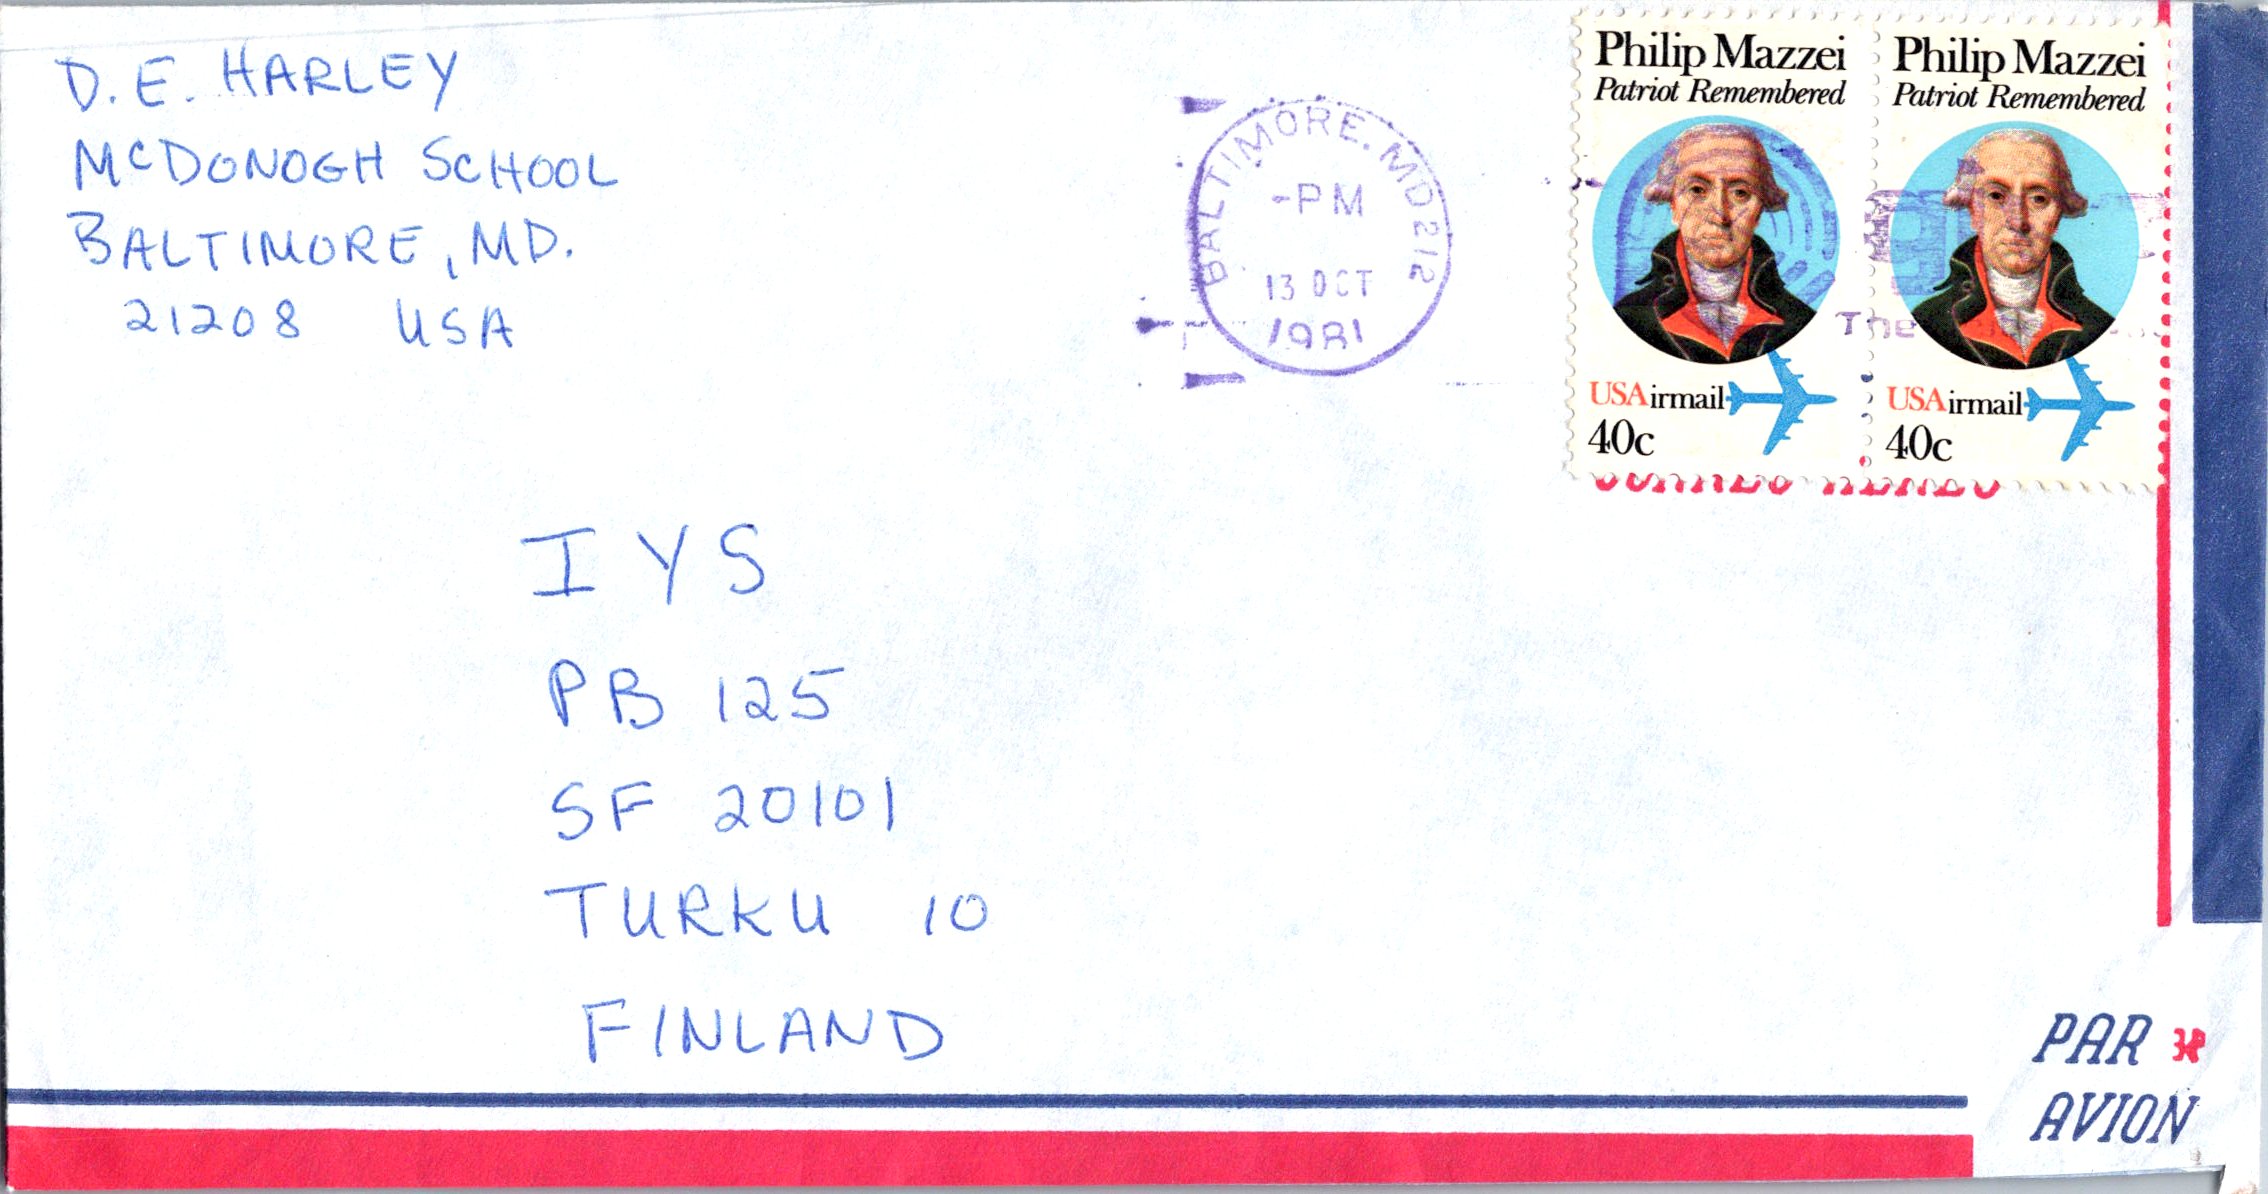 D. E. HARLEY
McDONOGH SCHOOL
BALTIMORE, MD.
21208 USA
BALTIMORE. MD 212
-PM
13 OCT
1981
Philip Mazzei
Patriot Remembered
USAirmail
40c
Philip Mazzei
Patriot Remembered
USAirmail
40c
The
IYS
PB 125
SF 20101
TURKU 10
FINLAND
PAR
AVION